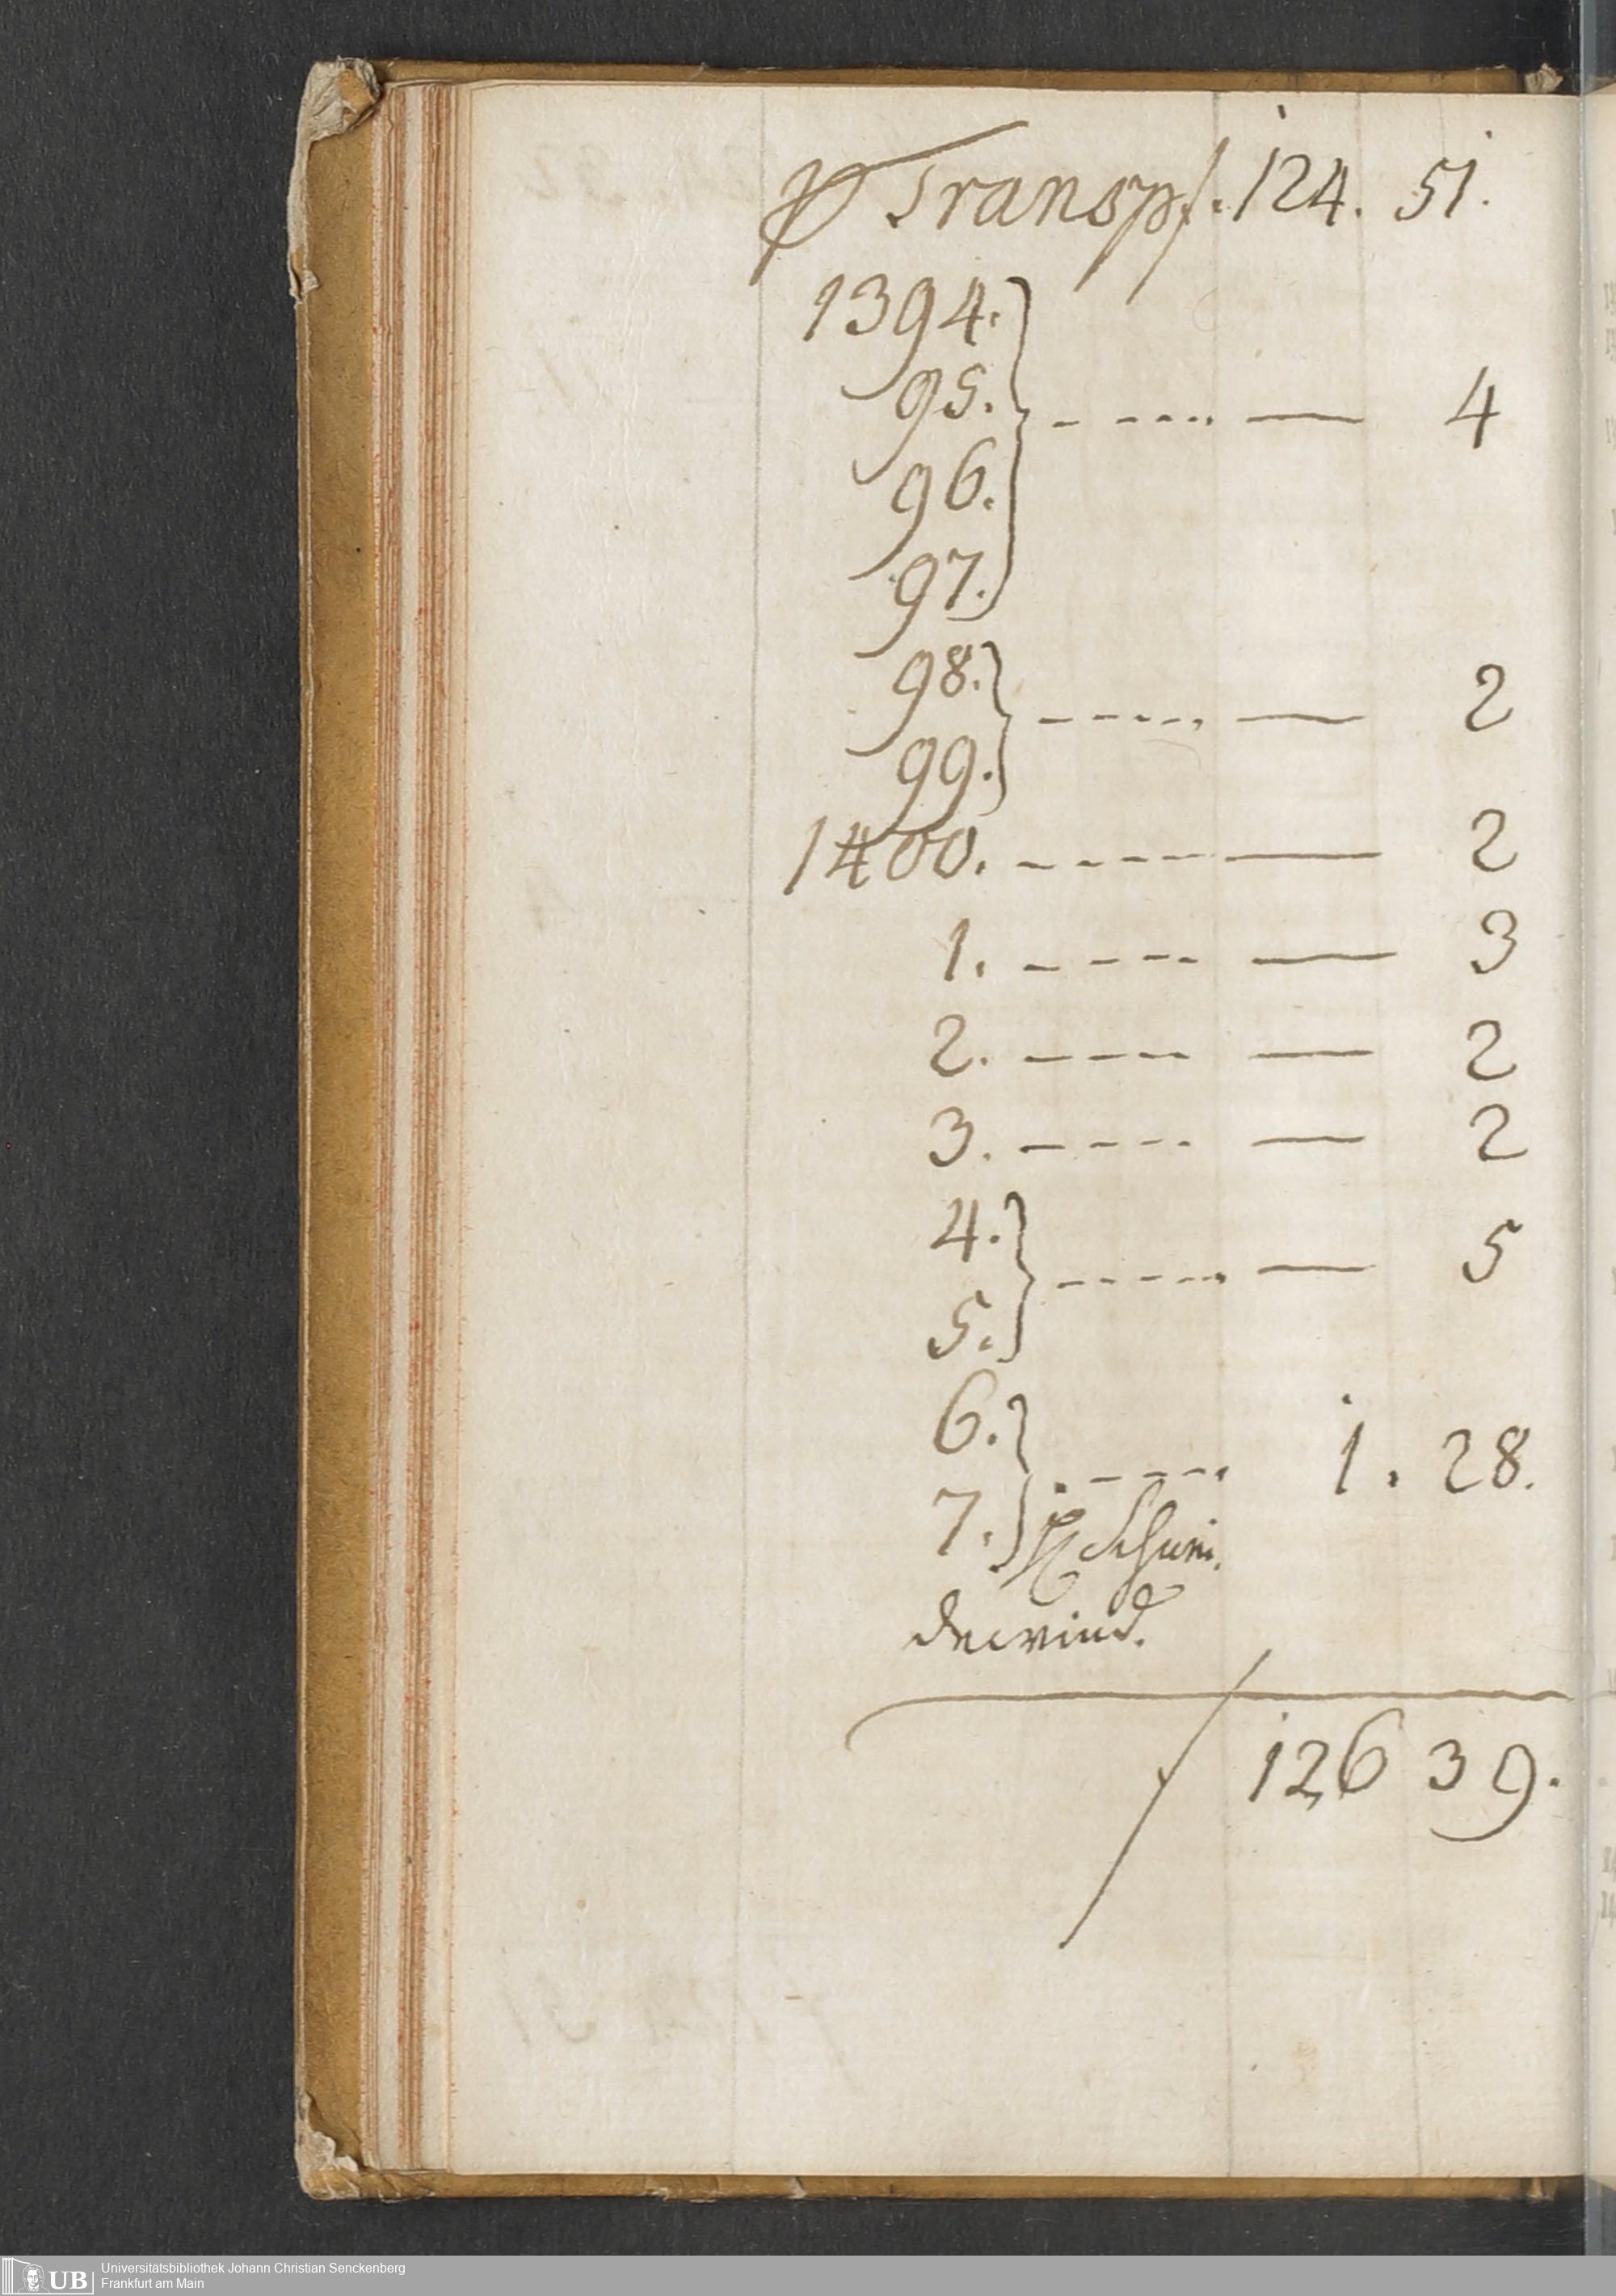 Pr Transp f. 124. 51.
1394.
95. - - - - — 4
96.
97.
98. - - - - — 2
99.
1400. - - - - — 2
1. - - - - — 3
2. - - - - — 2
3. - - - - — 2
4.
5. - - - - — 5
6.
7. - - - - 1. 28.
126 39.
UB Universitätsbibliothek Johann Christian Senckenberg
Frankfurt am Main